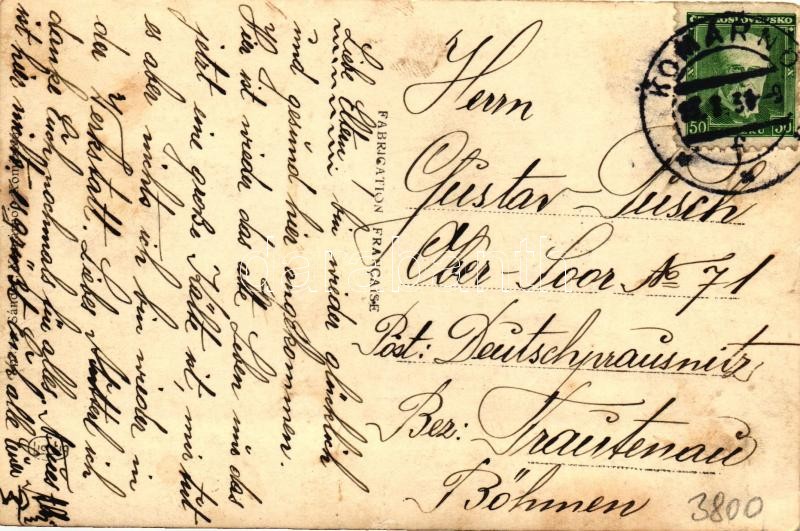 Liebe Eltern! bin wieder glücklich
und gesund hier angekommen.
Hier ist wieder das alte Leben nur das
jetzt eine große Kälte ist, mir tut
es aber nichts ich bin wieder in
der Werkstatt. Liebe Mutter ich
danke Euch nochmals für alles,
ist hier nicht
alle
FABRICATION FRANÇAISE
Herrn
Gustav Pusch
Ober-Soor № 71
Post: Deutschprausnitz
Bez: Trautenau
Böhmen
3800
ČESKOSLOVENSKO
50 50
KOMÁRNO
darabanth